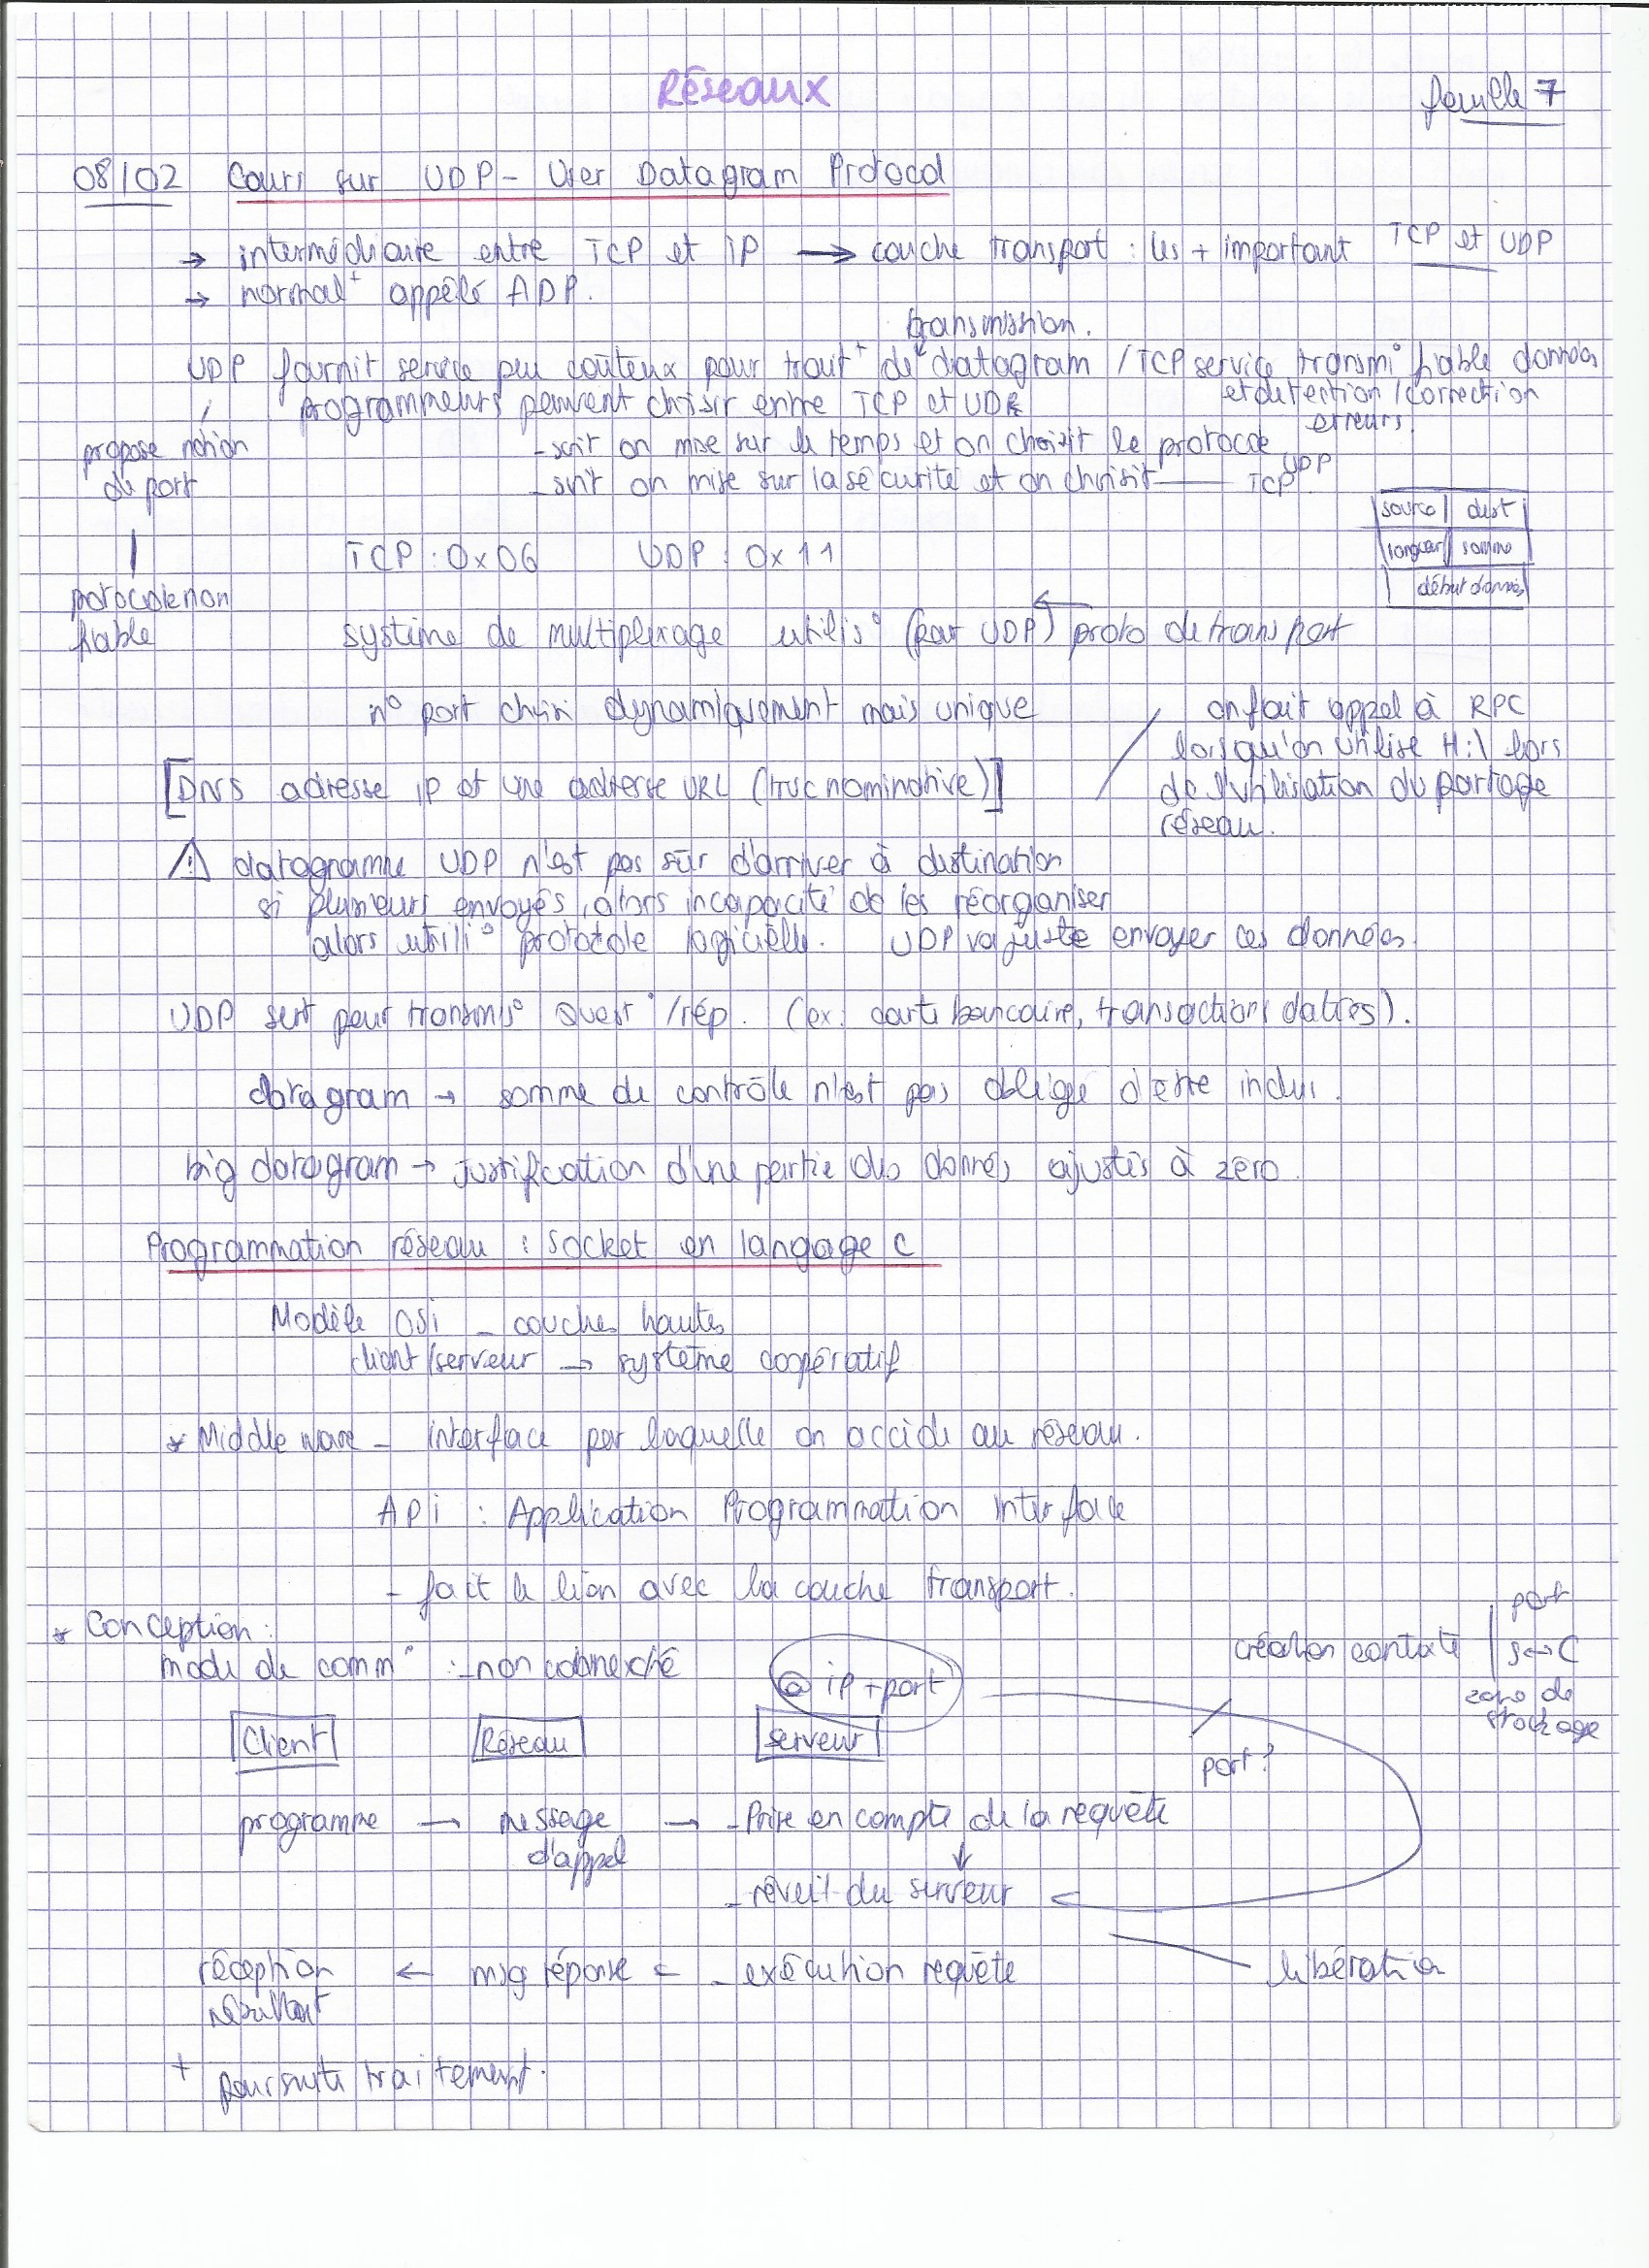 Réseaux
feuille 7
08/02 Cours sur UDP - User Datagram Protocol
→ intermédiaire entre TCP et IP → couche transport : les + important TCP et UDP
→ normal^t appelé ADP.
transmission.
UDP fournit service peu coûteux pour trait^t de datagram / TCP service transmi° fiable données
et détection / correction
erreurs.
programmeurs peuvent choisir entre TCP et UDP
propose notion
de port
- soit on mise sur le temps et on choisit le protocole UDP
- soit on mise sur la sécurité et on choisit —— TCP
source | dest
longueur | somme
début données
TCP : 0x06 UDP : 0x11
protocole non
fiable
système de multiplexage utilis° (par UDP) ← proto de transport
n° port choisi dynamiquement mais unique
on fait appel à RPC
lorsqu'on utilise H:\ lors
de l'utilisation du partage
réseau.
[DNS adresse IP et une adresse URL (truc nominative)]
⚠ datagramme UDP n'est pas sûr d'arriver à destination
si plusieurs envoyés, alors incapacité de les réorganiser
alors utili° protocole logicielle. UDP va juste envoyer ces données.
UDP sert pour transmis° Quest°/rép. (ex: carte bancaire, transactions
datagram → somme de contrôle n'est pas obligé d'être inclu.
big datagram → justification d'une partie des données ajustés à zéro.
Programmation réseau : socket en langage C
Modèle OSI - couches hautes
client/serveur → système coopératif
* Middleware - interface par laquelle on accède au réseau.
API : Application Programmation Interface
- fait le lien avec la couche transport.
* Conception :
mode de comm° : - non connecté
@ IP + port
création contexte
port
S↔C
zone de
stockage
Client Réseau Serveur
port?
programme → message
d'appel → - Prise en compte de la requête
↓
- réveil du serveur
réception
résultat ← msg réponse ← - exécution requête
libération
+ poursuite traitement.